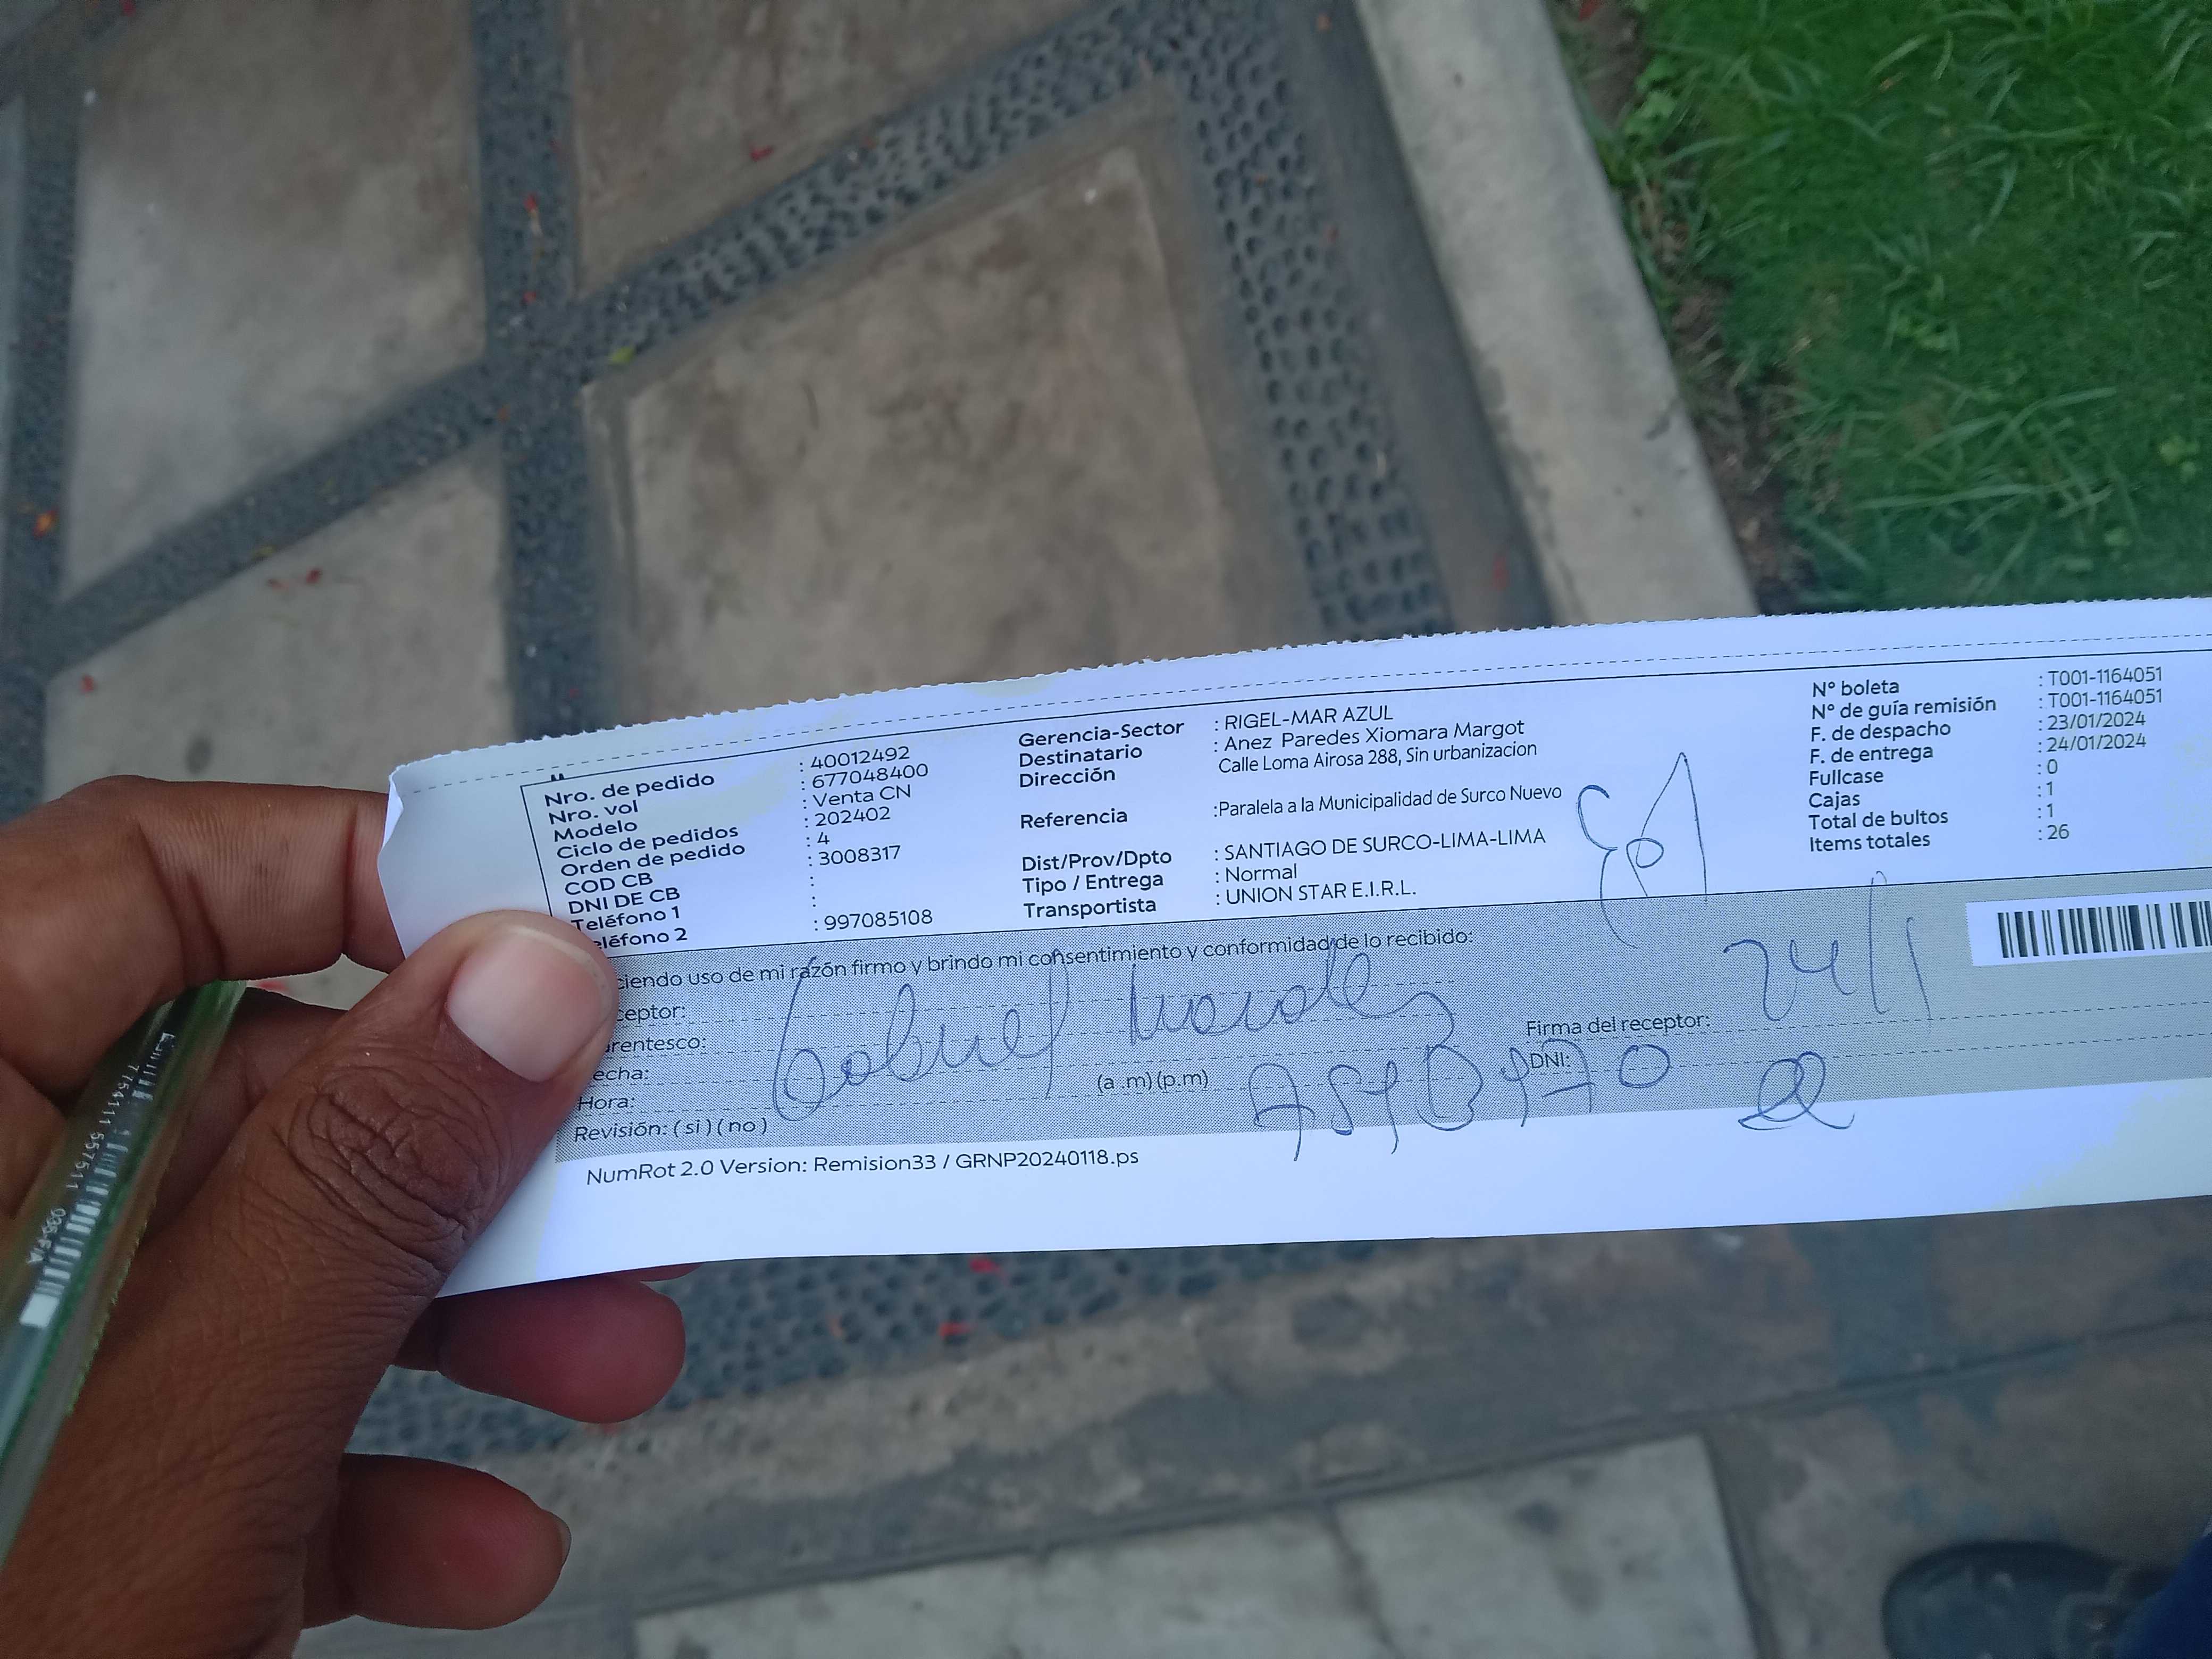 Nro. de pedido : 40012492
Nro. vol : 677048400
Modelo : Venta CN
Ciclo de pedidos : 202402
Orden de pedido : 4
COD CB : 3008317
DNI DE CB :
Teléfono 1 :
eléfono 2 : 997085108
Gerencia-Sector : RIGEL-MAR AZUL
Destinatario : Anez Paredes Xiomara Margot
Dirección Calle Loma Airosa 288, Sin urbanizacion
Referencia :Paralela a la Municipalidad de Surco Nuevo
Dist/Prov/Dpto : SANTIAGO DE SURCO-LIMA-LIMA
Tipo / Entrega : Normal
Transportista : UNION STAR E.I.R.L.
N° boleta : T001-1164051
N° de guía remisión : T001-1164051
F. de despacho : 23/01/2024
F. de entrega : 24/01/2024
Fullcase : 0
Cajas : 1
Total de bultos : 1
Items totales : 26
ciendo uso de mi razón firmo y brindo mi consentimiento y conformidad de lo recibido:
ceptor:
rentesco:
echa:
Hora: (a .m) (p.m)
Revisión: ( si ) ( no )
Firma del receptor:
DNI:
24/1
NumRot 2.0 Version: Remision33 / GRNP20240118.ps
7754111 557511